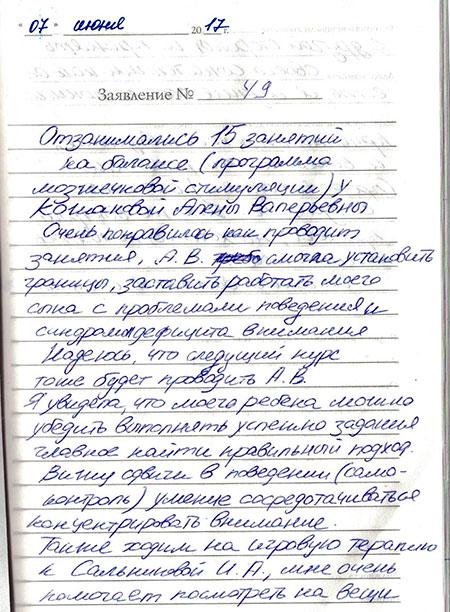 " 07 " июня 2017 г.
Заявление № 49
Отзанимались 15 занятий
на балансе (программа
мозжечковой стимуляции) у
Алены Валерьевны
Очень понравилось как проводит
занятия, А.В. смогла установить
границы, заставить работать моего
сына с проблемами поведения и
синдромы дефицита внимания
Надеюсь, что следущий курс
тоже будет проводить А.В.
Я увидела, что моего ребенка можно
убедить выполнять успешно задания
главное найти правильный подход.
Вижу сдвиги в поведении (само-
контроль) умение сосредотачиваться
концентрировать внимание.
Также ходим на игровую терапию
к Сальниковой И.А., мне очень
помогает посмотреть на вещи